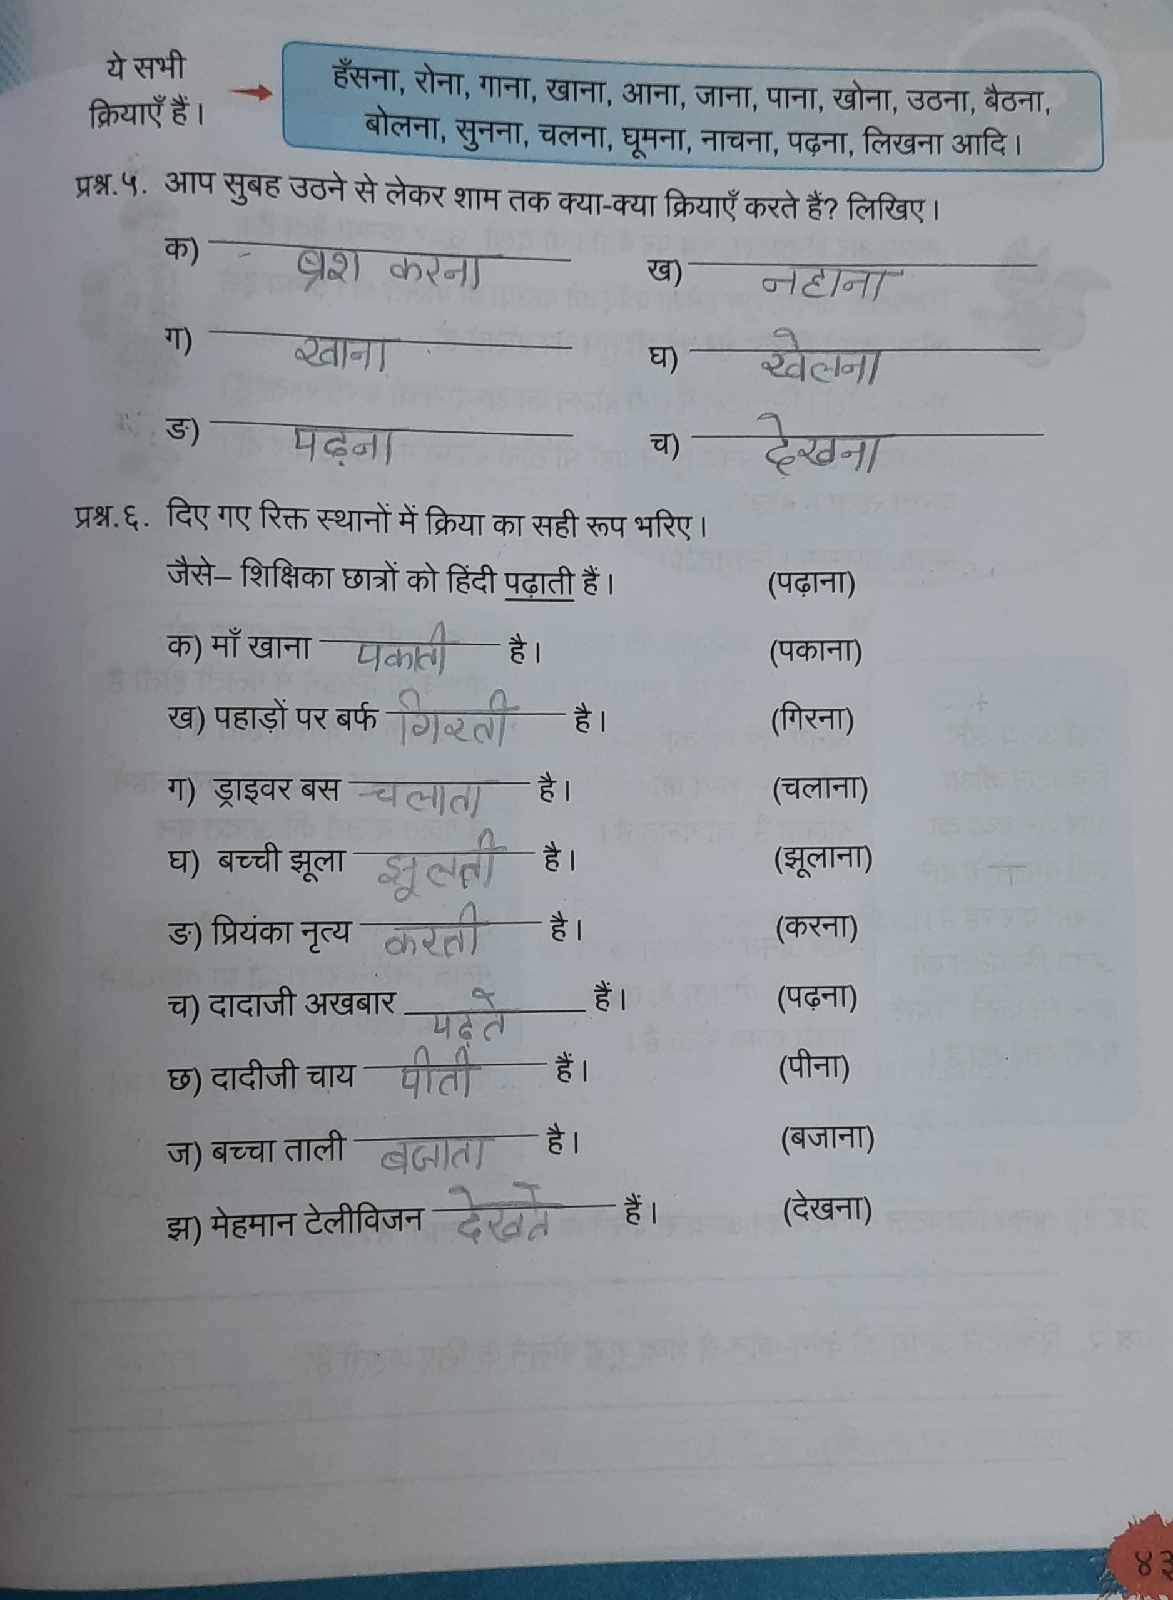 ये सभी
क्रियाएँ हैं।
हँसना, रोना, गाना, खाना, आना, जाना, पाना, खोना, उठना, बैठना,
बोलना, सुनना, चलना, घूमना, नाचना, पढ़ना, लिखना आदि।
प्रश्न.५. आप सुबह उठने से लेकर शाम तक क्या-क्या क्रियाएँ करते हैं? लिखिए।
क) ब्रश करना ख) नहाना
ग) खाना घ) खेलना
ङ) पढ़ना च) देखना
प्रश्न.६. दिए गए रिक्त स्थानों में क्रिया का सही रूप भरिए।
जैसे– शिक्षिका छात्रों को हिंदी पढ़ाती हैं। (पढ़ाना)
क) माँ खाना पकाती है। (पकाना)
ख) पहाड़ों पर बर्फ गिरती है। (गिरना)
ग) ड्राइवर बस चलाता है। (चलाना)
घ) बच्ची झूला झूलती है। (झूलाना)
ङ) प्रियंका नृत्य करती है। (करना)
च) दादाजी अखबार पढ़ते हैं। (पढ़ना)
छ) दादीजी चाय पीती हैं। (पीना)
ज) बच्चा ताली बजाता है। (बजाना)
झ) मेहमान टेलीविजन देखते हैं। (देखना)
४३